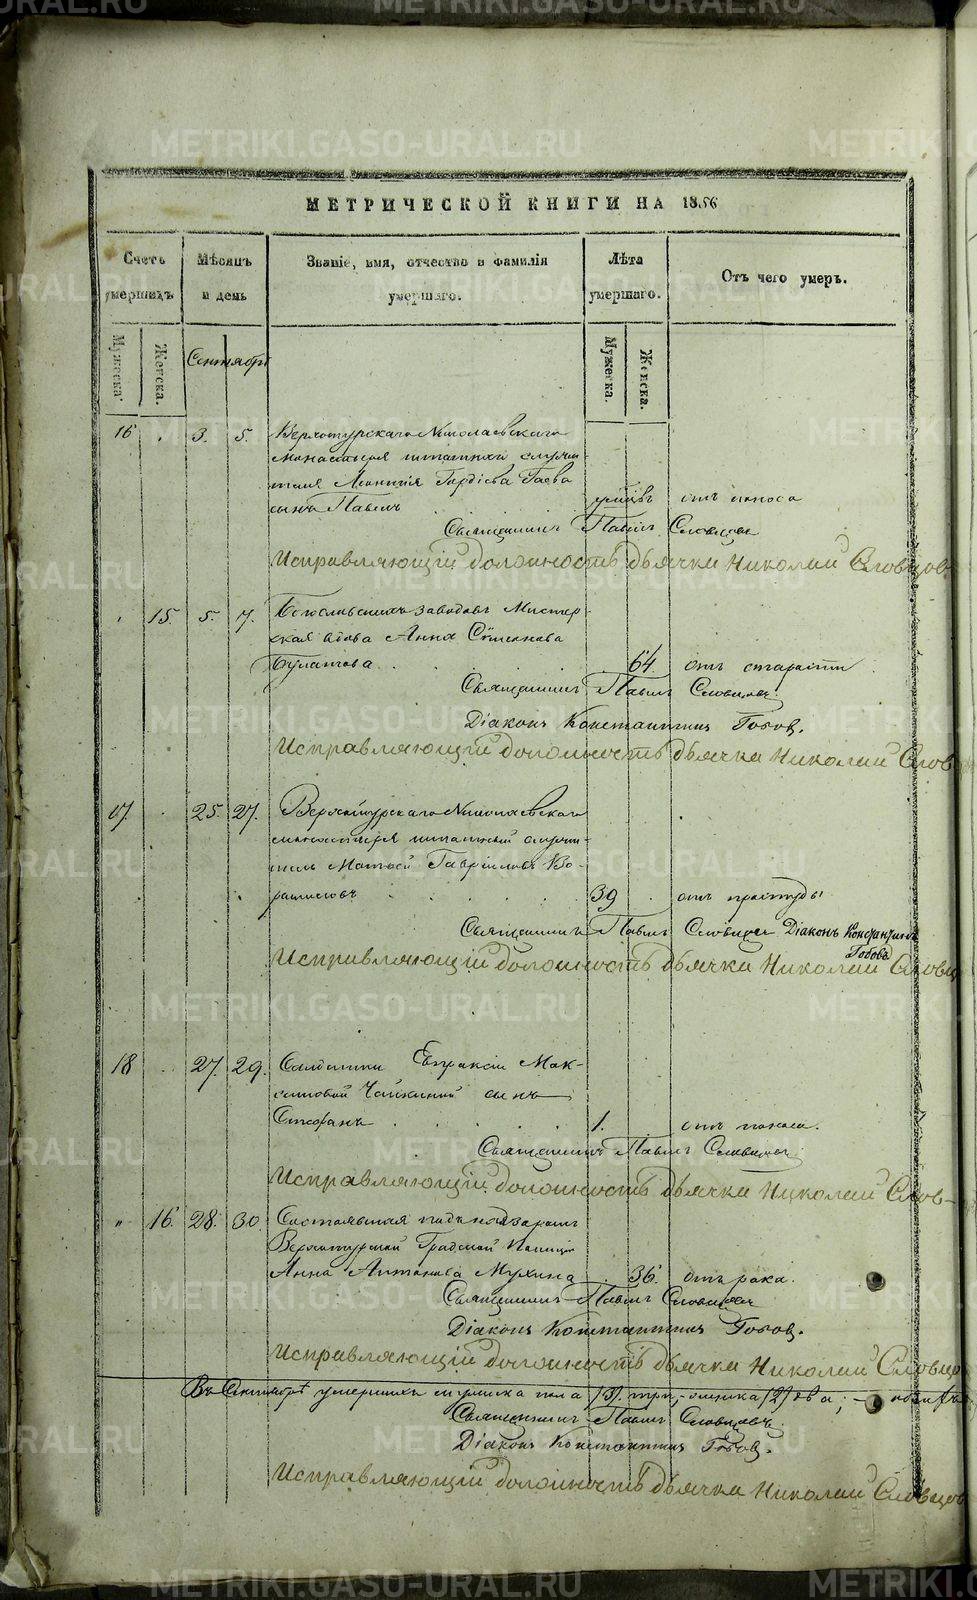 МЕТРИЧЕСКОЙ КНИГИ НА 1866
Счетъ умершихъ
Мѣсяцъ и день
Званіе, имя, отчество и фамилія умершаго.
Лѣта умершаго.
Отъ чего умеръ.
Мужеска.
Женска.
Сентябрь
Мужеска.
Женска.
16 3. 5. Верхотурскаго Николаевскаго
монастыря штатнаго служи-
теля Гордіева
сынъ Павелъ отъ поноса
Священникъ Павелъ Словцовъ
Исправляющій должность дьячка Николай Словцов
15. 5. 7. Богословскихъ заводовъ Мастер-
ская вдова Анна
64. отъ старости
Священникъ Павелъ Словцовъ.
Діаконъ Константинъ Гобов.
Исправляющий должность дьячка Николай Слов
17. 25. 27. Верхотурскаго Николаевскаго
монастыря штатный служи-
тель Матвей Гавриловъ Во-
39 отъ простуды
Священникъ Павелъ Словцовъ Діаконъ Константинъ
Гобовъ
Исправляющій должность дьячка Николай Словц
18 27. 29. Солдатки Евпраксіи Мак-
симовой Чайкиной сынъ
Стефанъ 1. отъ поноса.
Священникъ Павелъ Словцовъ
Исправляющій должность дьячка Николай Слов-
" 16. 28. 30. Состоявшая подъ надзоромъ
Верхотурской Градской Полиціи
Анна Антонова Мухина 36. отъ рака.
Священникъ Павелъ Словцовъ
Діаконъ Константинъ Гобов.
Исправляющій должность дьячка Николай Словцо
Въ Сентябрѣ умершихъ мужеска пола (3) три, женска (2) два; —
Священникъ Павелъ Словцовъ.
Діаконъ Константинъ Гобов.
Исправляющій должность дьячка Николай Словцов
METRIKI.GASO-URAL.RU